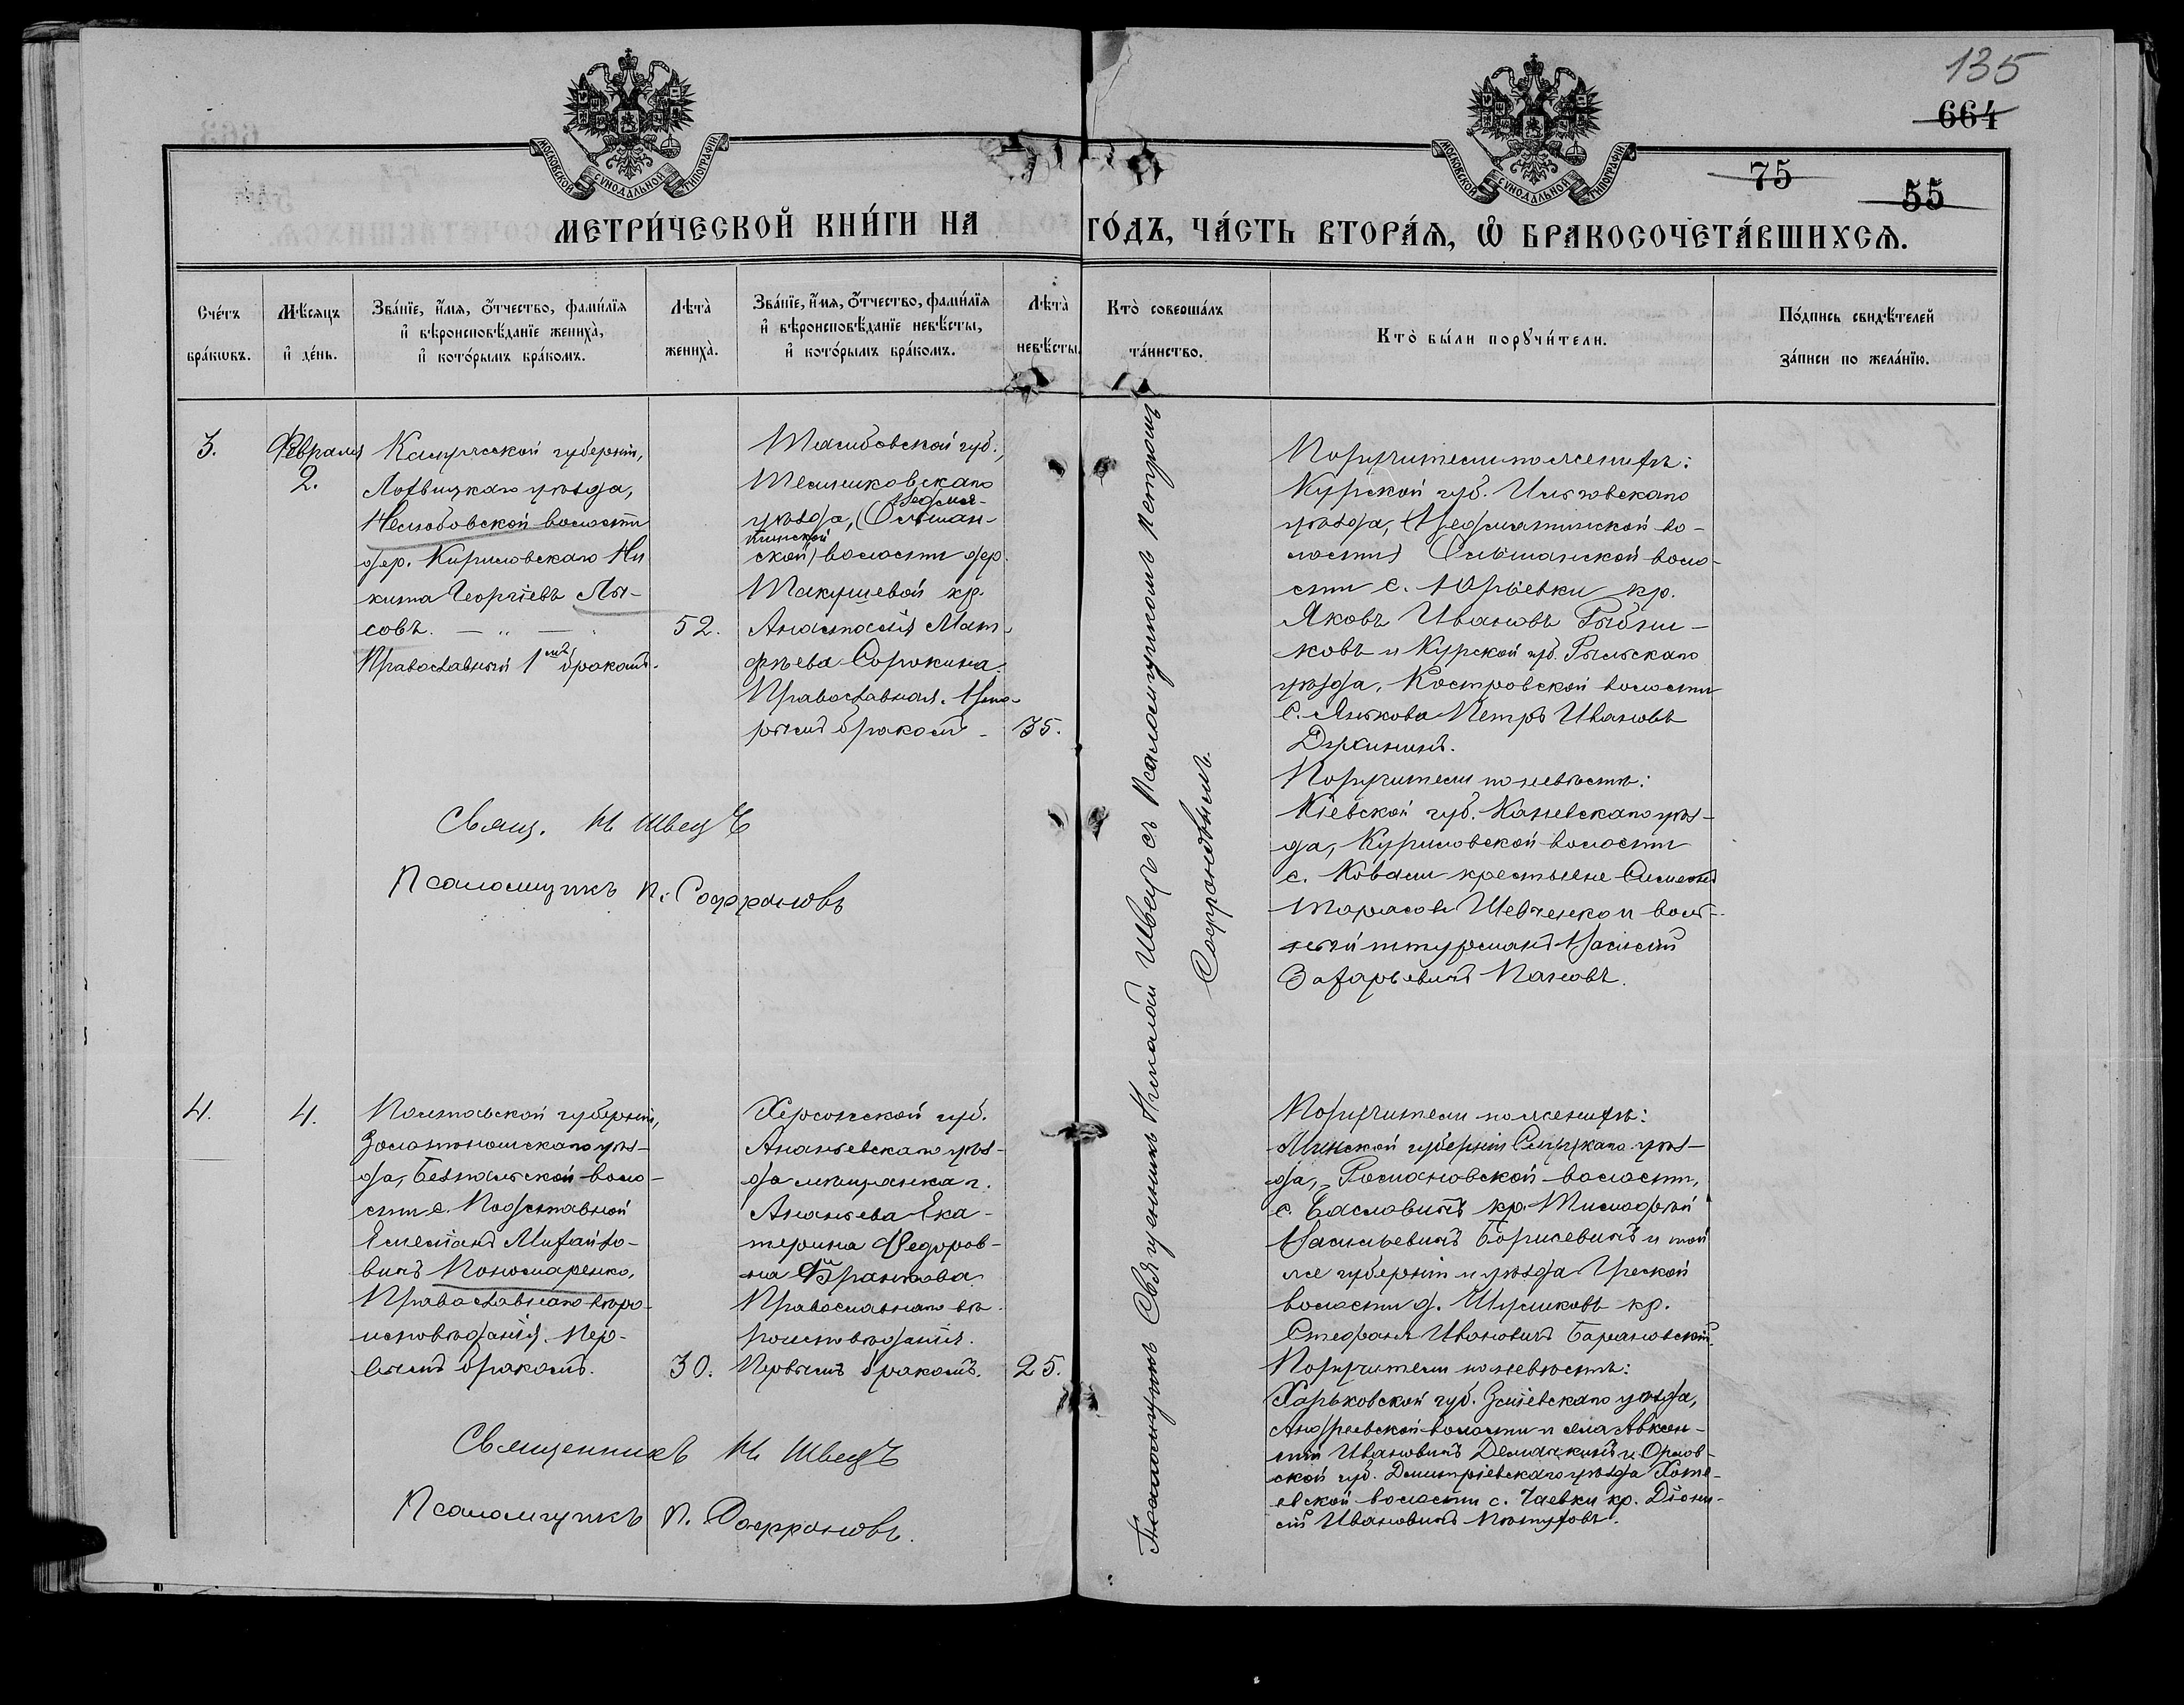 135
664
75
55
МОСКОВСКОЙ СУНОДАЛЬНОЙ ТИПОГРАФІИ.
МОСКОВСКОЙ СУНОДАЛЬНОЙ ТИПОГРАФІИ.
МЕТРИ́ЧЕСКОЙ КНИ́ГИ НА ГО́ДЪ, ЧА́СТЬ ВТОРА́Ѧ, Ѽ БРАКОСОЧЕТА́ВШИХСѦ.
Сче́тъ
бра́кѡвъ.
Мѣ́сяцъ
и҆ де́нь.
Зва́нїе, и҆́мя, ѻ҆́тчество, фами́лїя
и҆ вѣроисповѣ́данїе жениха̀,
и҆ кото́рымъ бра́комъ.
Лѣта̀
жениха̀.
Зва́нїе, и҆́мя, ѻ҆́тчество, фами́лїя
и҆ вѣроисповѣ́данїе невѣ́сты,
и҆ кото́рымъ бра́комъ.
Лѣта̀
невѣ́сты.
Кто̀ соверша́лъ
та́инство.
Кто̀ бы́ли порꙋчи́тели.
По́дпись свидѣ́телей
за́писи по жела́нїю.
3.
Февраля
2.
Калужской губерніи,
уѣзда,
волости
дер. Кириловскаго Ни
кита Георгіевъ Лы-
совъ. — „ —
Православный 1мъ бракомъ.
52.
Тамбовской губ.,
Темниковскаго
уѣзда,
ской) волости дер.
Такушевой кр.
Анастасія Мат-
фѣева Сорокина
Православная. Вто-
рымъ бракомъ -
35.
Свящ. Н. Швецъ
Псаломщикъ П. Софроновъ
Священникъ Николай Швецъ съ Псаломщикомъ Петромъ
Софроновымъ.
Поручители по женихѣ:
Курской губ. Льговскаго
уѣзда, во-
лости) Ольшанской воло-
сти с. Юрьевки кр.
Яковъ Ивановъ
ковъ и Курской губ. Рыльскаго
уѣзда, Костровской волости
с. Янькова Петръ Ивановъ
Поручители по невѣстѣ:
Кіевской губ. Каневскаго уѣз-
да, Куриловской волости
с. Ковали крестьяне Симеонъ
Тарасовъ Шевченко и воль-
ный штурманъ Василій
Захарьевичъ Пановъ.
4.
4.
Полтавской губерніи,
Золотоношскаго уѣз-
да, Безпальской воло-
сти с. Подставной
Емеліанъ Михайло-
вичъ Пономаренко,
Православнаго вѣро-
исповѣданія. Пер-
вымъ бракомъ.
30.
Херсонской губ.
Ананьевскаго уѣз-
да мѣщанка г.
Ананьева Ека-
терина Федоров-
на
Православнаго вѣ-
роисповѣданія.
Первымъ бракомъ.
25.
Священникъ Н. Швецъ
Псаломщикъ П. Софроновъ.
Поручители по женихѣ:
Минской губерніи Слуцкаго уѣз-
да, Романовской волости,
с. Басловичъ кр. Тимофей
Васильевичъ Борисевичъ и той
же губерніи и уѣзда Греской
волости д. кр.
Стефанъ Ивановичъ Барановскій.
Поручители по невѣстѣ:
Харьковской губ. Зміевскаго уѣзда,
Андреевской волости и села Авксен-
тій Ивановичъ и Орлов-
ской губ. Дмитріевскаго уѣзда
евской волости с. кр. Діони-
сій Ивановичъ Пѣтуховъ.